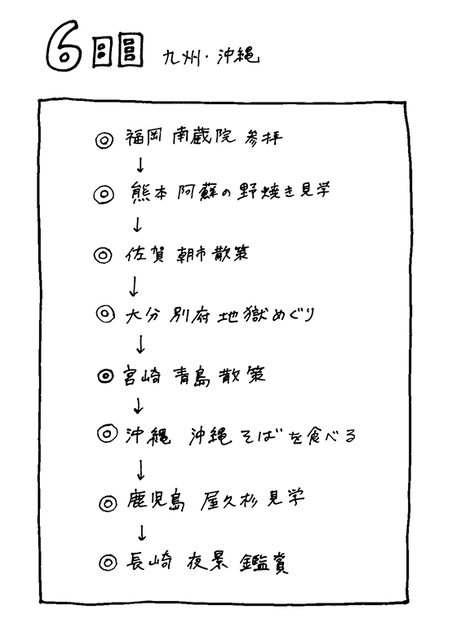 6日目 九州・沖縄
◎ 福岡 南蔵院 参拝
↓
◎ 熊本 阿蘇の野焼き見学
↓
◎ 佐賀 朝市散策
↓
◎ 大分 別府 地獄めぐり
↓
◎ 宮崎 青島散策
↓
◎ 沖縄 沖縄そばを食べる
↓
◎ 鹿児島 屋久杉見学
↓
◎ 長崎 夜景 鑑賞